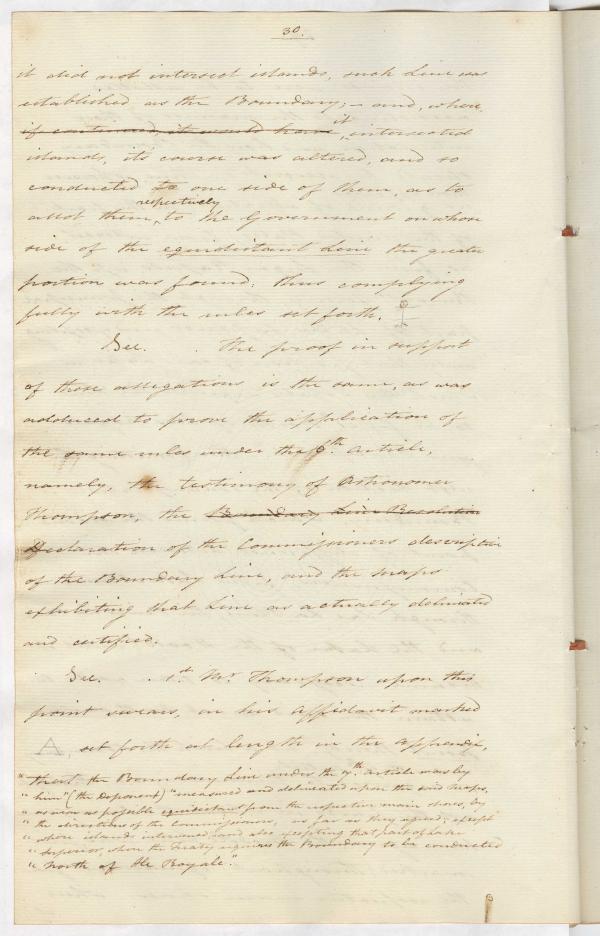 30.
it did not intersect islands, such Line was
established as the Boundary; – and, where,
if continued, it would have it, intersected
islands, it's course was altered, and so
conducted to one side of them, as to
allot them, respectively to the Government on whose
side of the equidistant Line the greater
portion was found: thus complying
fully with the rules set forth.
Sec. . The proof in support
of those allegations is the same, as was
adduced to prove the application of
the same rules under the 6th. Article,
namely, the testimony of Astronomer
Thompson, the Boundary Line Resolution
Declaration of the Commissioners descriptive
of the Boundary Line, and the Maps
exhibiting that Line as actually delineated
and certified.
Sec. . 1st Mr Thompson upon this
point swears, in his affidavit marked
A, set forth at length in the appendix,
"that the Boundary Line under the 7th. article was by
"him" (the Deponent) "measured and delineated upon the said Maps,
"as near as possible equidistant from the respective main shores, by
"the directions of the Commissioners, as far as they agreed; except
"where islands intervened, and also excepting that part of Lake
"Superior, where the Treaty requires the Boundary to be conducted
"North of Ile Royale".